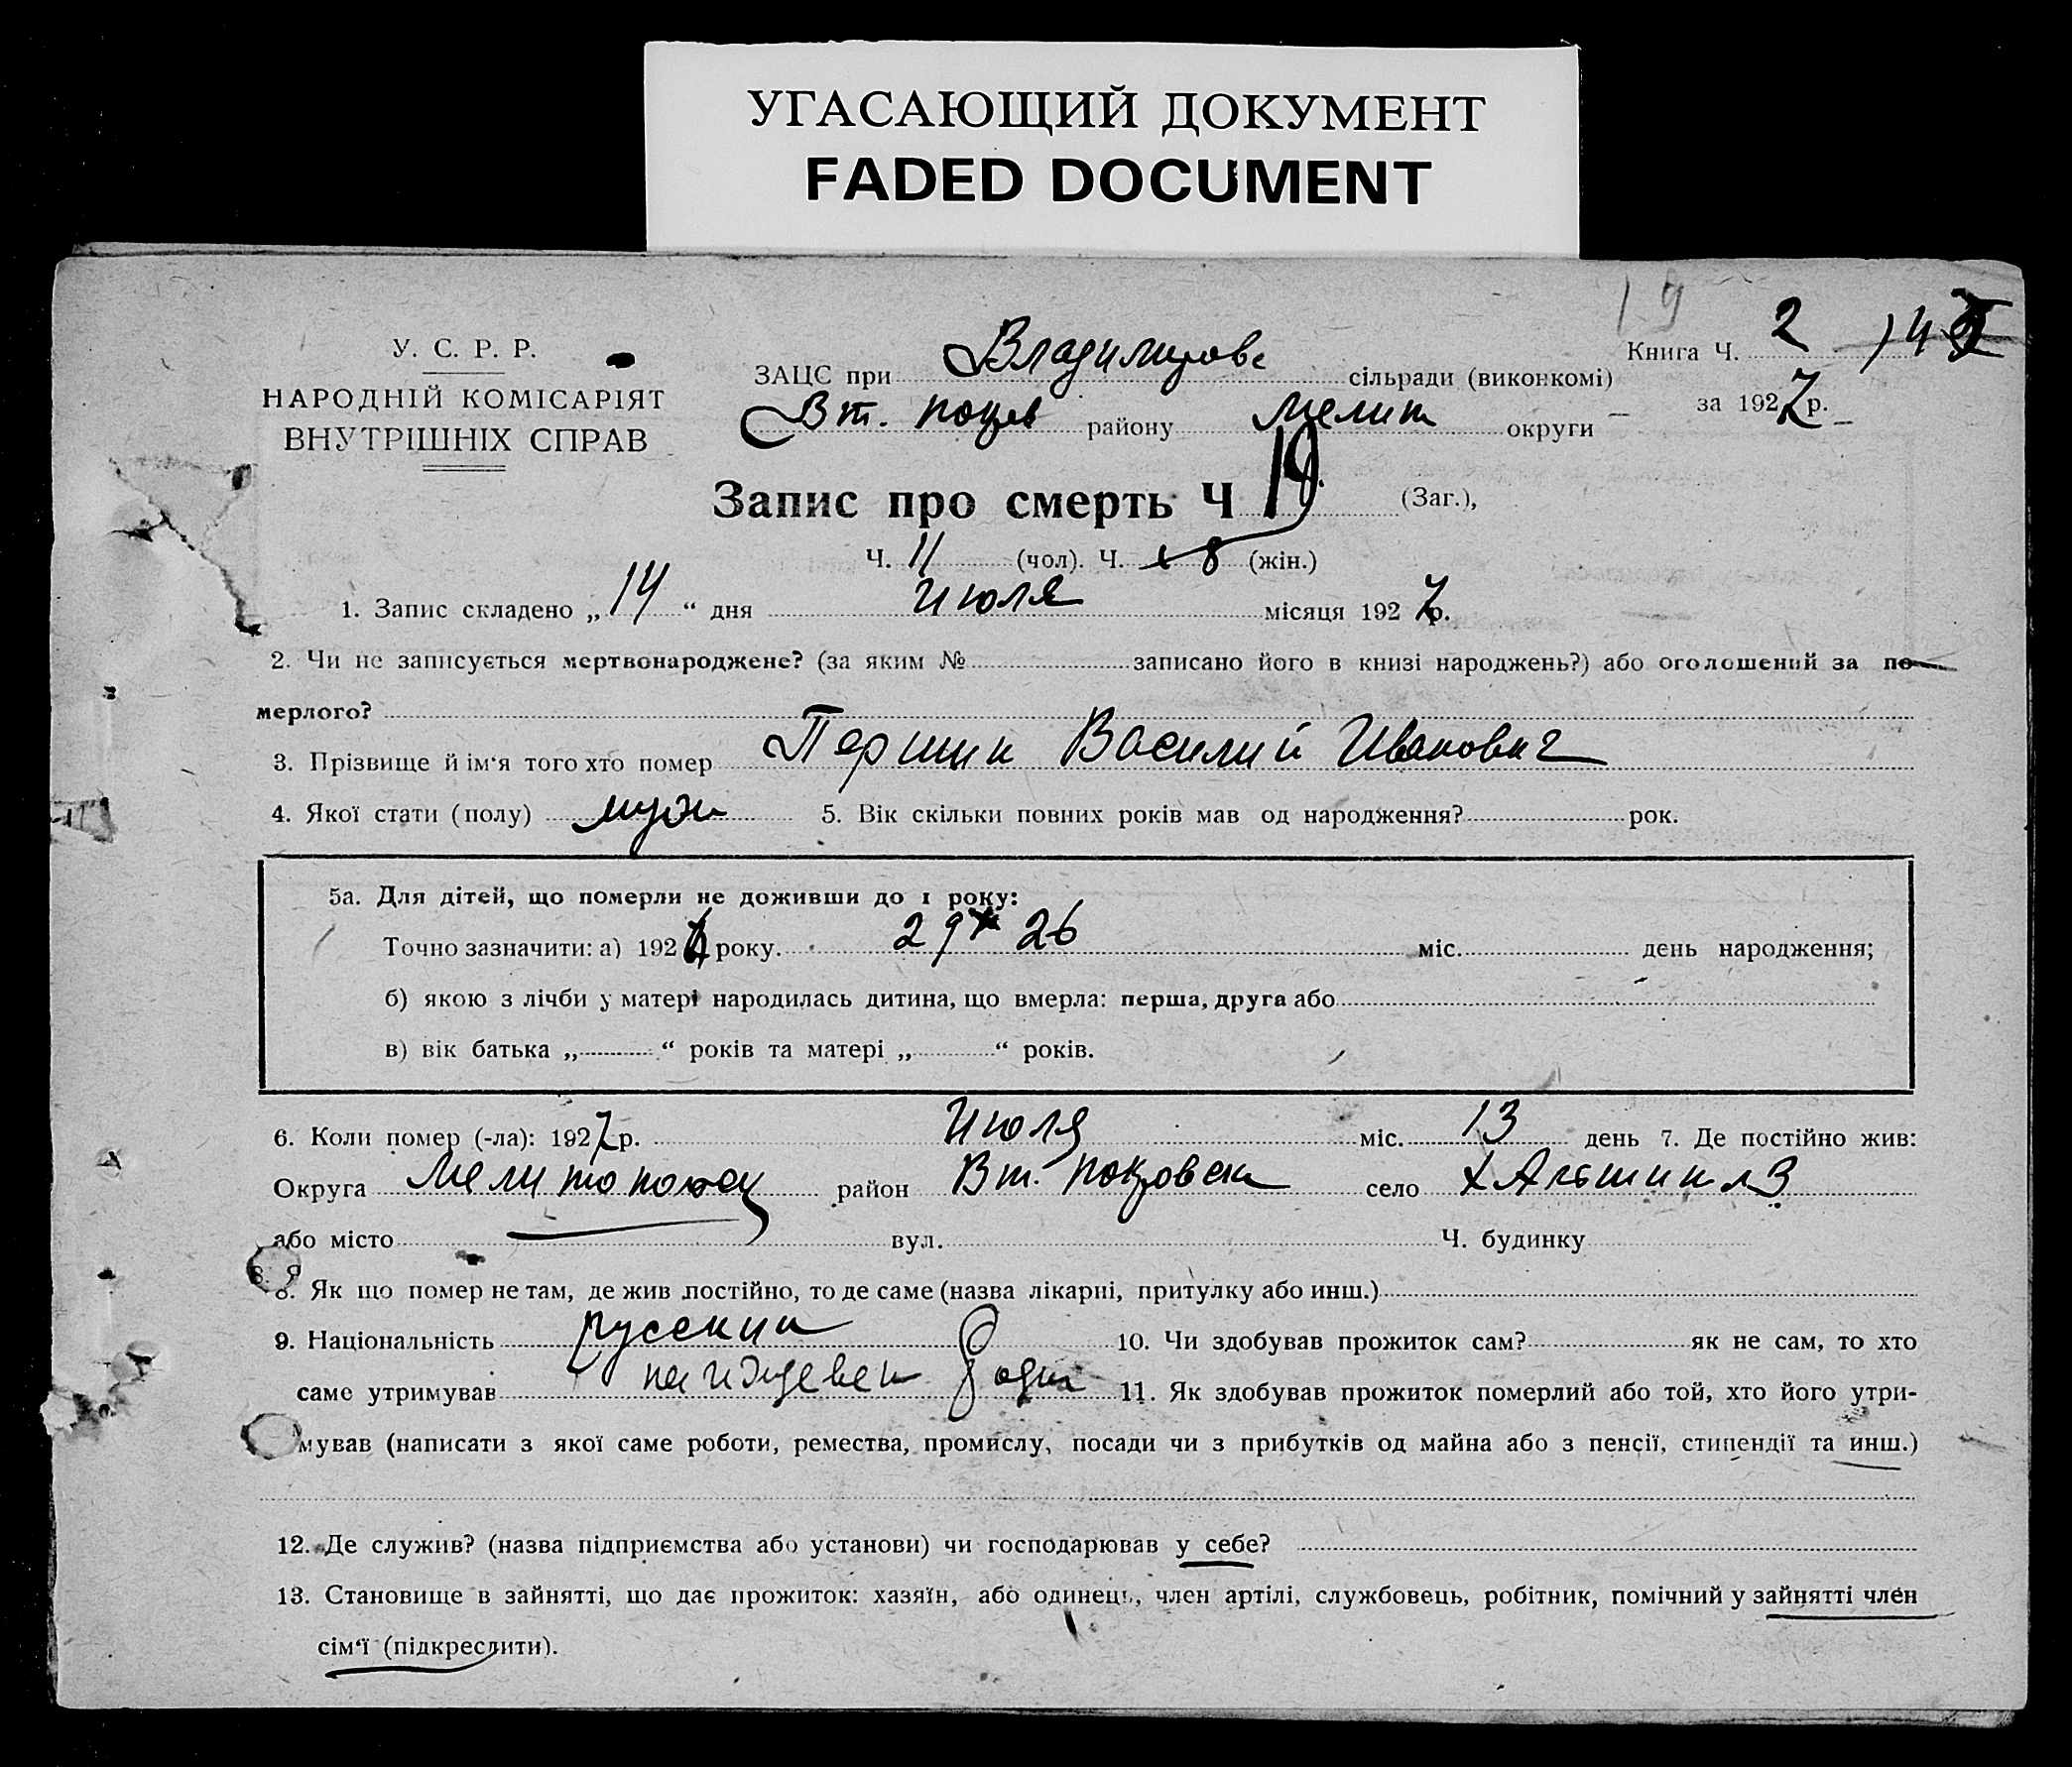 УГАСАЮЩИЙ ДОКУМЕНТ
FADED DOCUMENT
19
У. С. Р. Р.
НАРОДНІЙ КОМІСАРІЯТ
ВНУТРІШНІХ СПРАВ
ЗАЦС при Владимирове сільради (виконкомі)
Книга Ч. 2
за 1927 р.
Вт. покров району Мелит округи
Запис про смерть Ч 19 (Заг.),
Ч. 11 (чол). Ч. 8 (жін.)
1. Запис складено „ 14 “ дня Июля місяця 1927 р.
2. Чи не записується мертвонароджене? (за яким № записано його в книзі народжень?) або оголошений за по-
мерлого?
3. Прізвище й ім‘я того хто помер Першин Василий Иванович
4. Якої стати (полу) муж 5. Вік скільки повних років мав од народження? рок.
5а. Для дітей, що померли не доживши до 1 року:
Точно зазначити: а) 192 року. 29 26 міс. день народження;
б) якою з лічби у матері народилась дитина, що вмерла: перша, друга або
в) вік батька „ “ років та матері „ “ років.
6. Коли помер (-ла): 1927 р. Июля міс. 13 день 7. Де постійно жив:
Округа район Вт. Покровск село
або місто вул. Ч. будинку
8. Як що помер не там, де жив постійно, то де саме (назва лікарні, притулку або инш.)
9. Національність русский 10. Чи здобував прожиток сам? як не сам, то хто
саме утримував на иждевен родит 11. Як здобував прожиток померлий або той, хто його утри-
мував (написати з якої саме роботи, ремества, промислу, посади чи з прибутків од майна або з пенсії, стипендії та инш.)
12. Де служив? (назва підприємства або установи) чи господарював у себе?
13. Становище в зайнятті, що дає прожиток: хазяїн, або одинець, член артілі, службовець, робітник, помічний у зайнятті член
сім‘ї (підкреслити).